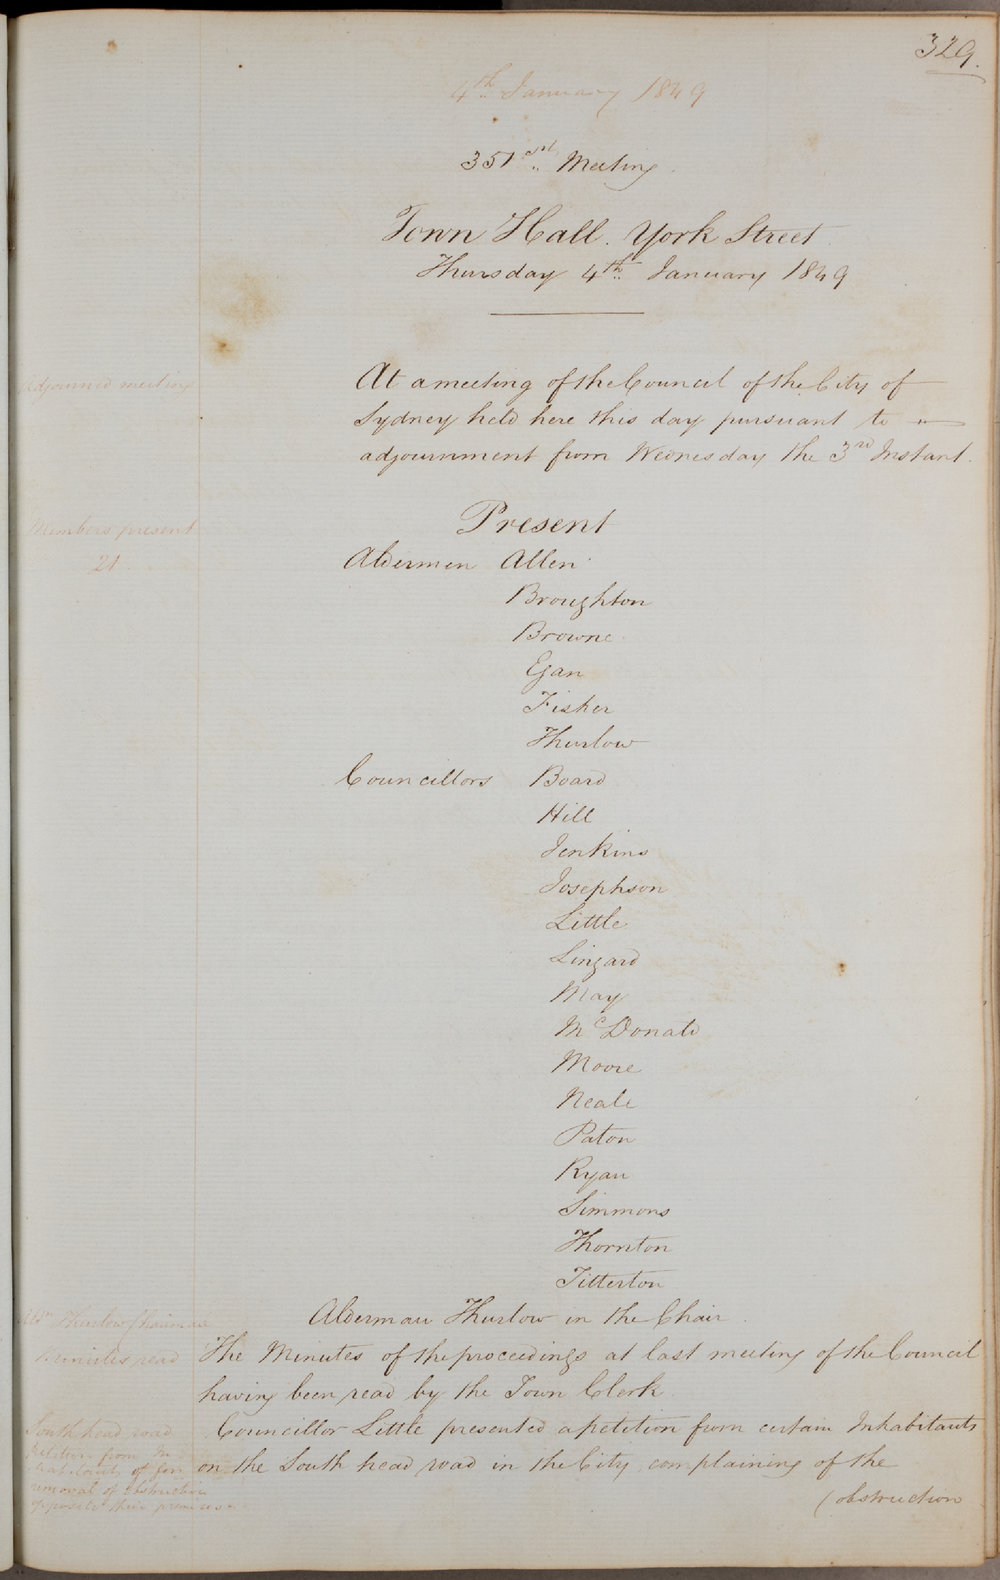 329.
4th January 1849
351st Meeting.
Town Hall. York Street.
Thursday 4th January 1849
Adjourned meeting
At a meeting of the Council of the City of
Sydney held here this day pursuant to
adjournment from Wednesday the 3rd Instant.
Members present
21
Present
Aldermen Allen
Broughton
Browne
Egan
Fisher
Thurlow
Councillors Board
Hill
Jenkins
Josephson
Little
Lingard
May
McDonald
Moore
Neale
Paton
Ryan
Simmons
Thornton
Titterton
Aldn Thurlow Chairman
Alderman Thurlow in the Chair.
Minutes read
The Minutes of the proceedings at last meeting of the Council
having been read by the Town Clerk
South head road
petition from In
habitants of for
removal of obstruction
opposite their premises
Councillor Little presented a petition from certain Inhabitants
on the South head road in the City complaining of the
(obstruction